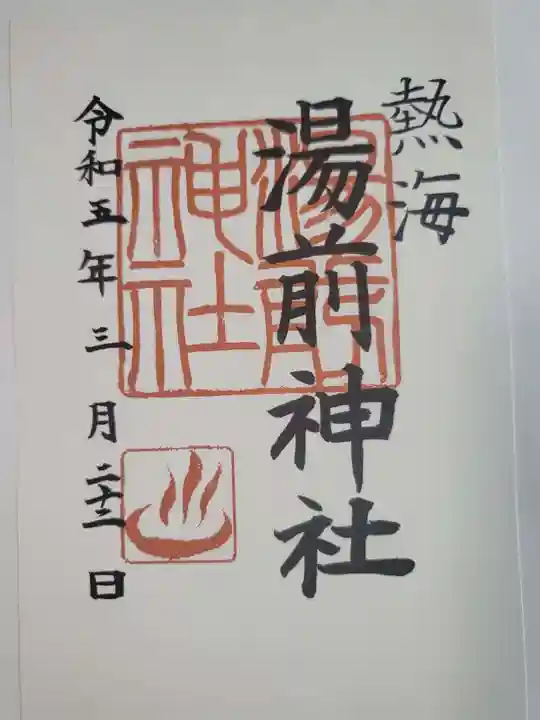 熱海
湯前神社
湯前神社
令和五年三月二十二日